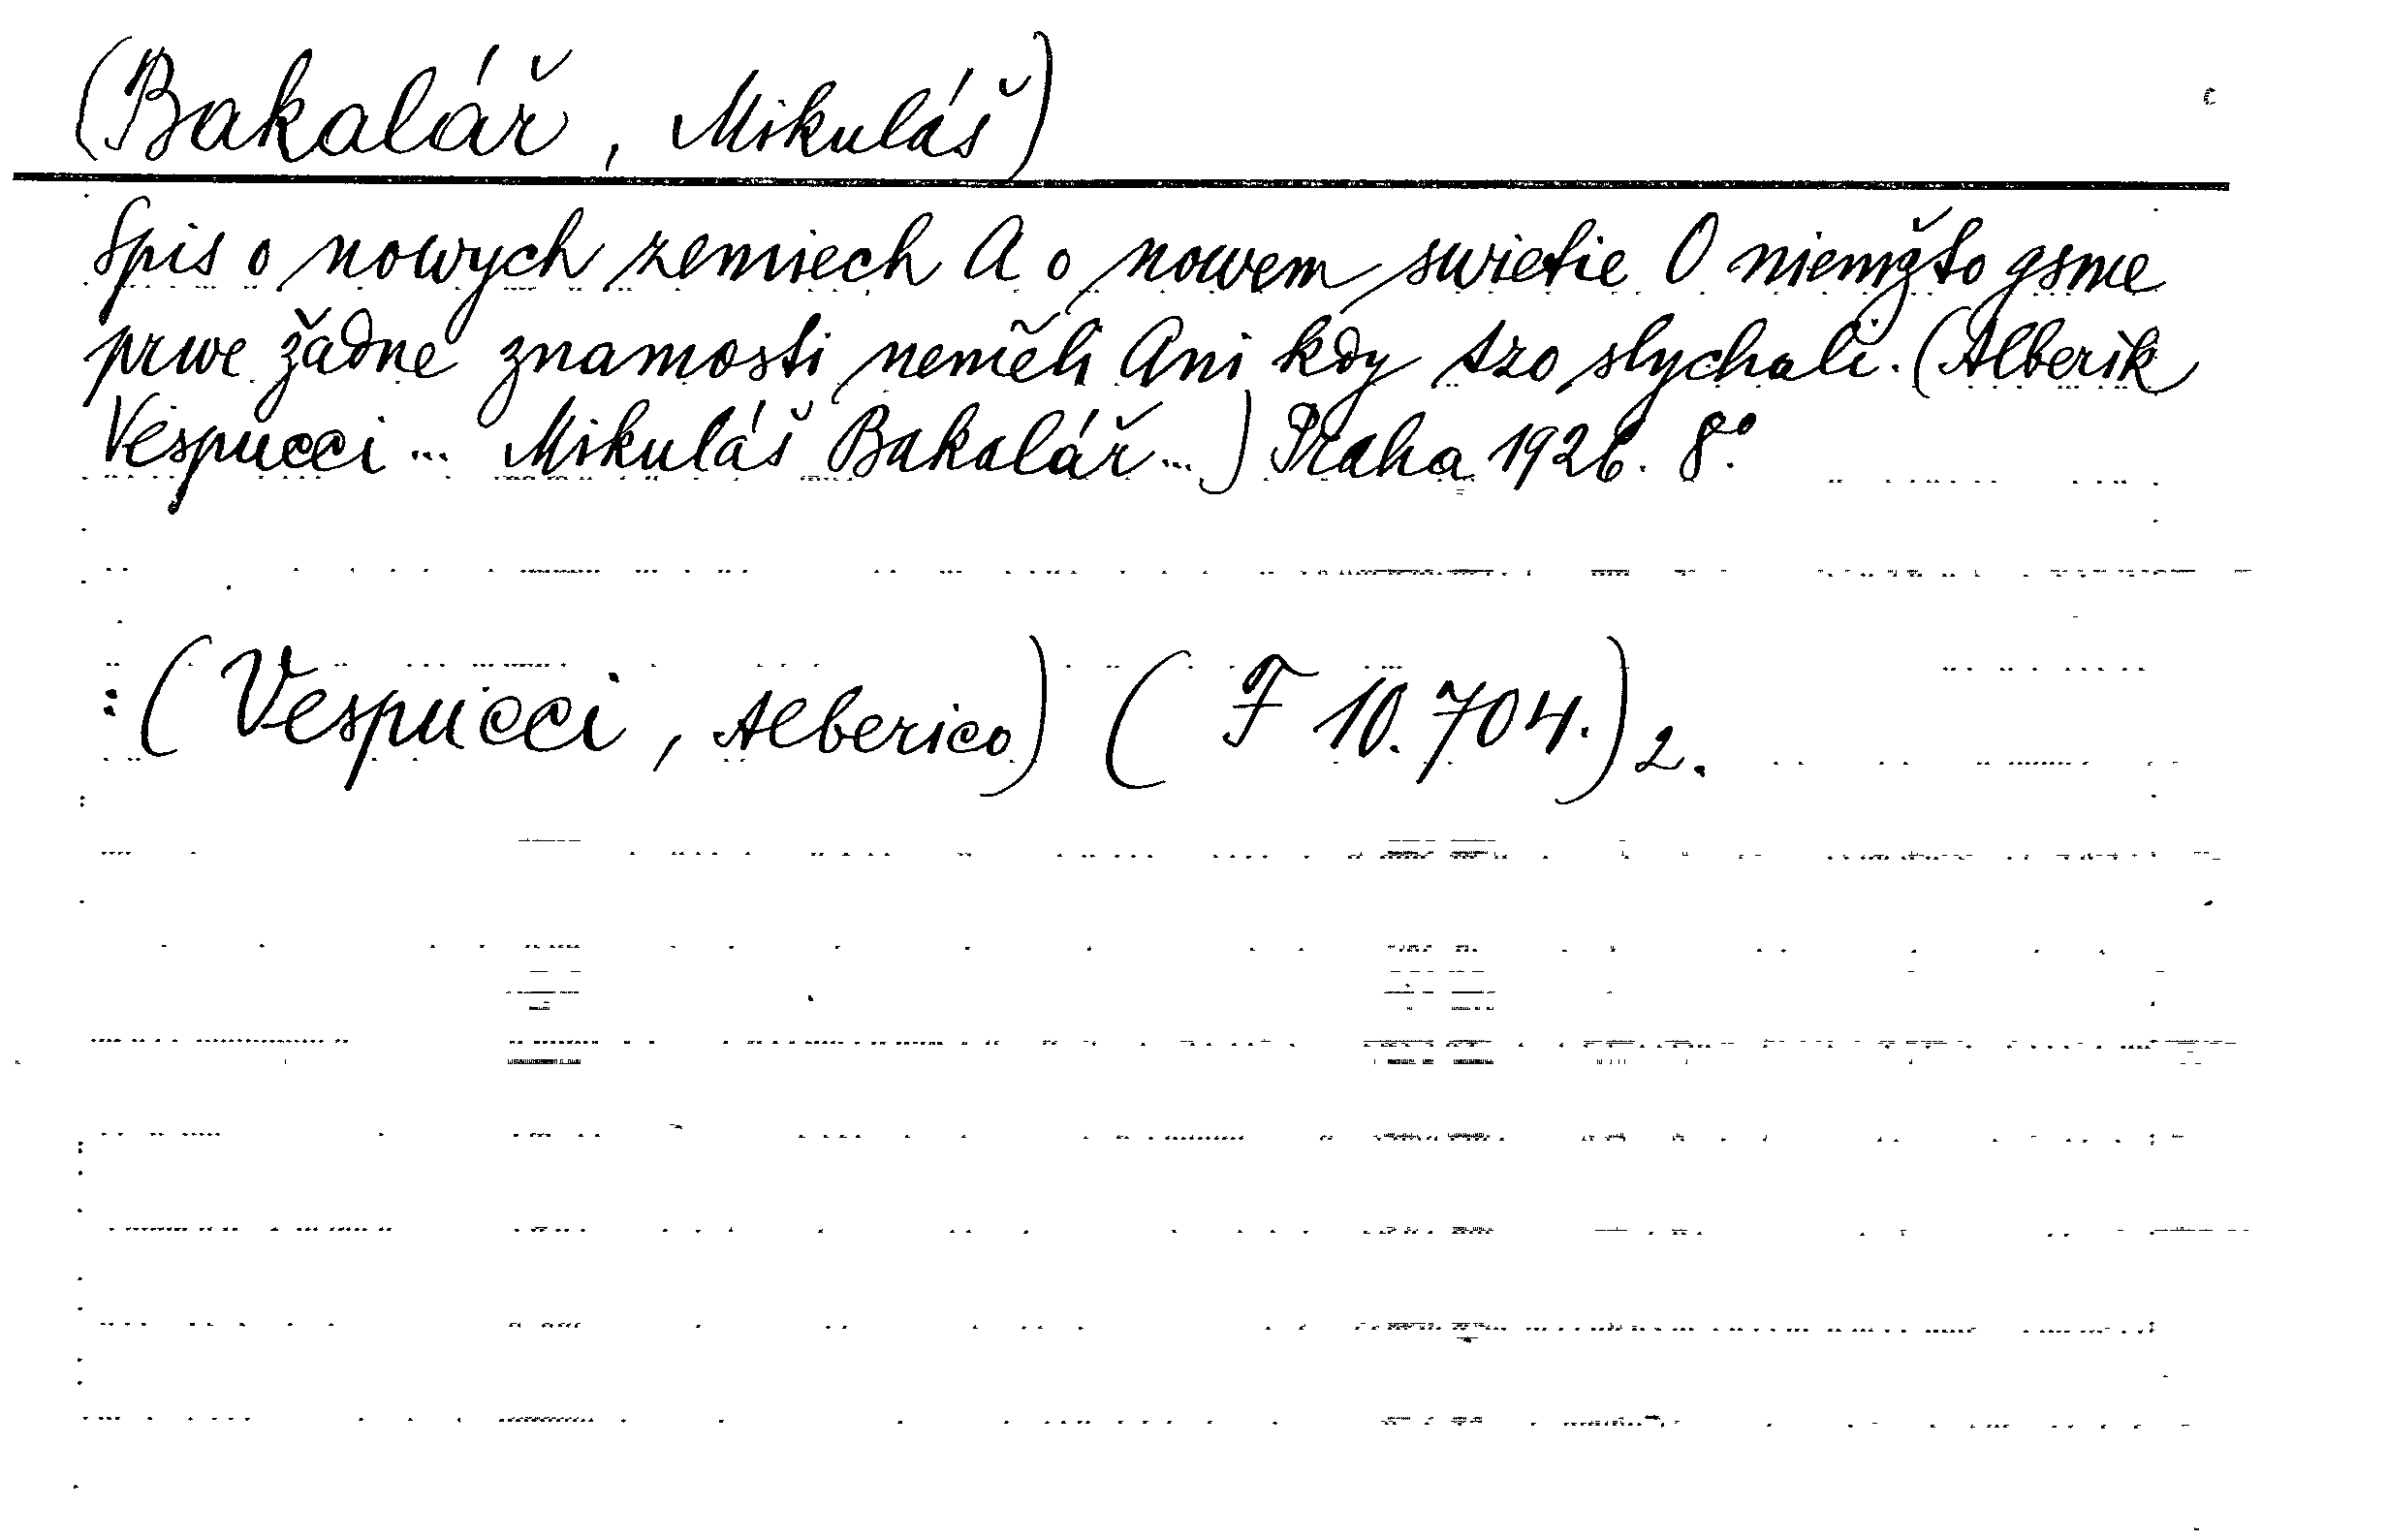 (Bakalář, Mikuláš)
Spis o nowych zemiech A o nowem swietie O niemžto gsme
prwe žadne znamosti neměli Ani kdy tzo slychali. (Alberik
Vespucci... Mikuláš Bakalář...) Praha 1926. 8°.
: (Vespucci, Alberico) (F 10.704.) 2.